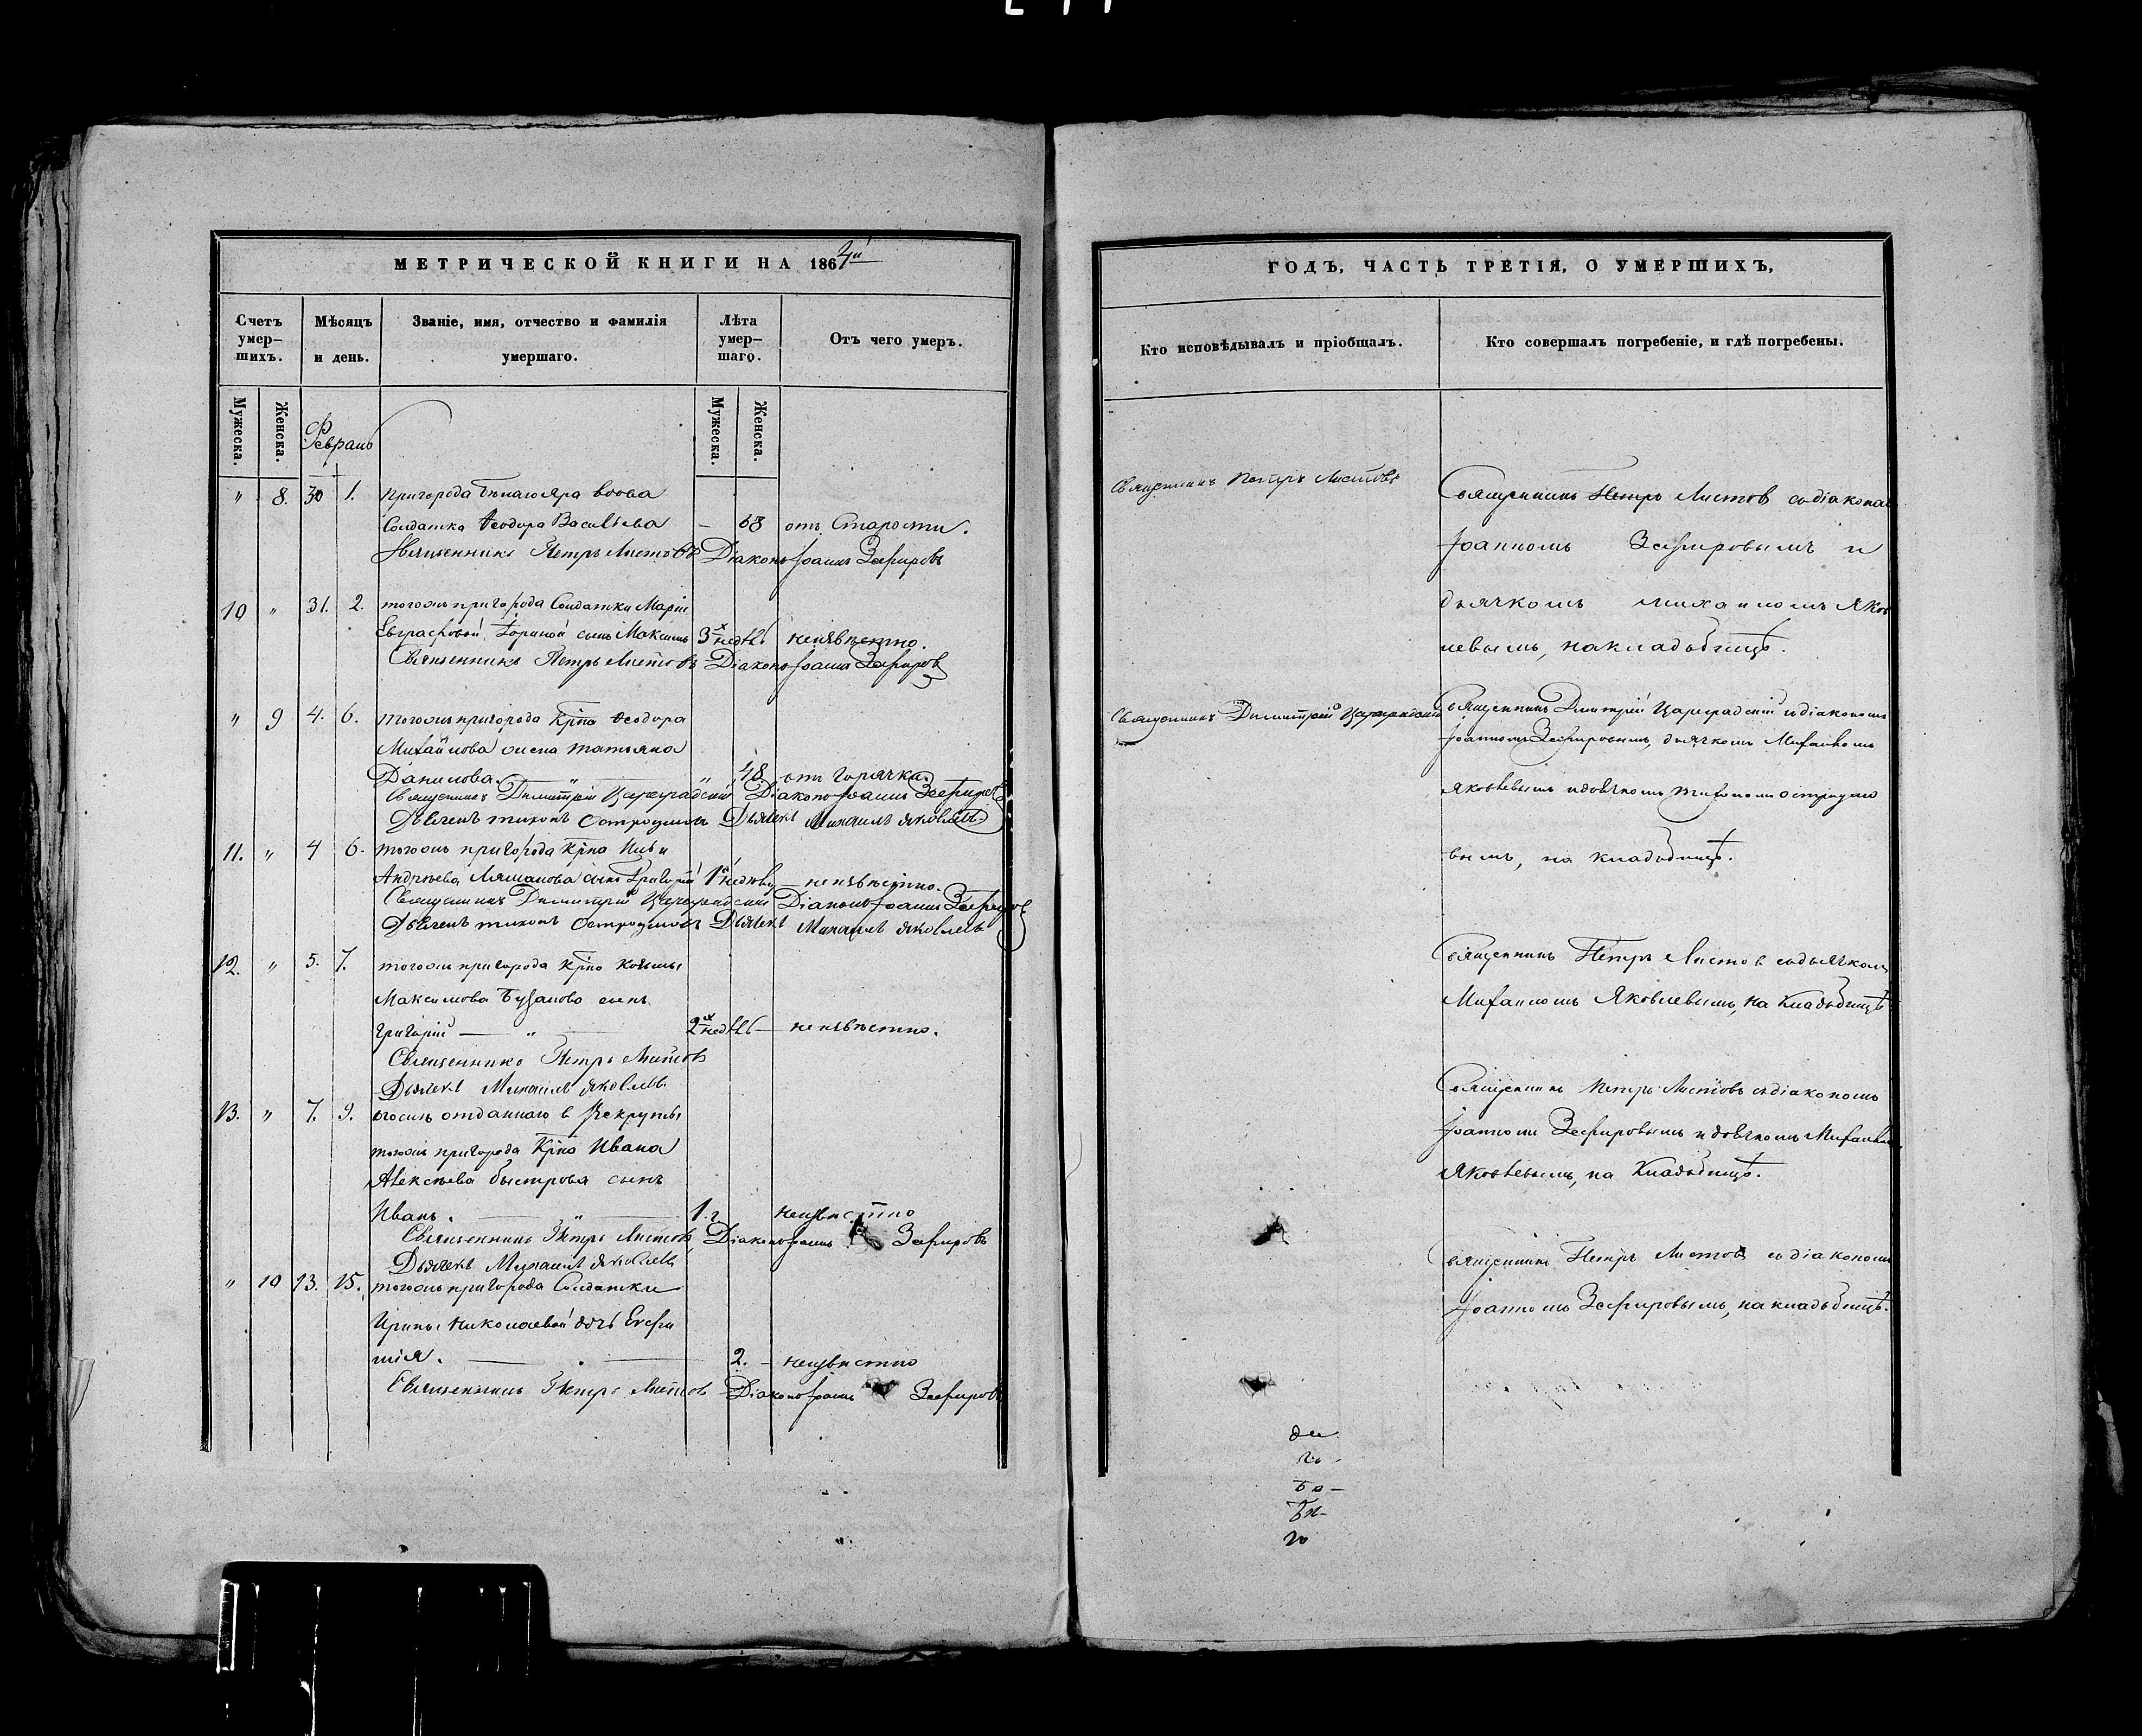 МЕТРИЧЕСКОЙ КНИГИ НА 1864й
Счетъ умер-шихъ.
Мѣсяцъ и день.
Званіе, имя, отчество и фамилія умершаго.
Лѣта умер-шаго.
Отъ чего умеръ.
Мужеска.
Женска.
Февраль
Мужеска.
Женска.
" 8. 30 1. Пригорода Бѣлаго яра вдова
Солдатка Ѳеодора Васильева — 68 отъ Старости.
Священникъ Петръ Листовъ Діаконъ Іоаннъ Зефировъ
10 " 31. 2. тогожъ пригорода Солдатки Маріи
Евграфовой сынъ Максимъ 3х недѣль неизвѣстно.
Священникъ Петръ Листовъ Діаконъ Іоаннъ Зефировъ
" 9 4. 6. тогожъ пригорода Крѣна Ѳеодора
Михайлова жена татьяна
Данилова. " " 48 отъ горячки.
Священникъ Димитрій Цареградскій Діаконъ Іоаннъ Зефировъ
Дьячекъ тихонъ Остроумовъ Дьячекъ Михаилъ Яковлевъ
11. " 4 6. тогожъ пригорода Крѣна Ильи
Андрѣева сынъ Григорій 1 недѣли — неизвѣстно.
Священникъ Димитрій Цареградскій Діаконъ Іоаннъ Зефировъ
Дьячекъ тихонъ Остроумовъ Дьячекъ Михаилъ Яковлевъ
12. " 5. 7. тогожъ пригорода Крѣна Козьмы
Максимова сынъ
Григорій — " — 2х недѣль — неизвѣстно.
Священникъ Петръ Листовъ
Дьячекъ Михаилъ Яковлевъ
13. " 7. 9. отданнаго в Рекруты
тогожъ пригорода Крѣна Ивана
Алексѣева быстрова сынъ
Иванъ. — " — 1. г. неизвѣстно
Священникъ Петръ Листовъ Діаконъ Іоаннъ Зефировъ
Дьячекъ Михаилъ Яковлевъ
" 10 13. 15. тогожъ пригорода Солдатки
Ирины Николаевой дочь Евфи
мія. — " — 2. — неизвѣстно
Священникъ Петръ Листовъ Діаконъ Іоаннъ Зефировъ
ГОДЪ, ЧАСТЬ ТРЕТІЯ, О УМЕРШИХЪ,
Кто исповѣдывалъ и пріобщалъ.
Кто совершалъ погребеніе, и гдѣ погребены.
Священникъ Петръ Листовъ
Священникъ Петръ Листов съ діакономъ
Іоанномъ Зефировымъ и
дьячкомъ михаиломъ Яков
левымъ, на кладбищѣ.
Священникъ Димитрій Цареградскій
Священникъ Дмитрій Цареградскій съ діакономъ
Іоанномъ Зефировымъ, дьячкомъ Михаиломъ
Яковлевымъ и дьячкомъ тихономъ остроумо
вымъ, на кладбищѣ.
Священникъ Петръ Листов съ дьячкомъ
Михаиломъ Яковлевымъ, на Кладбищѣ
Священникъ Петръ Листовъ съ діакономъ
Іоанномъ Зефировымъ и дьячкомъ Михаиломъ
Яковлевымъ, на Кладбищѣ.
Священникъ Петръ Листовъ съ діакономъ
Іоанномъ Зефировымъ, на кладбищѣ.